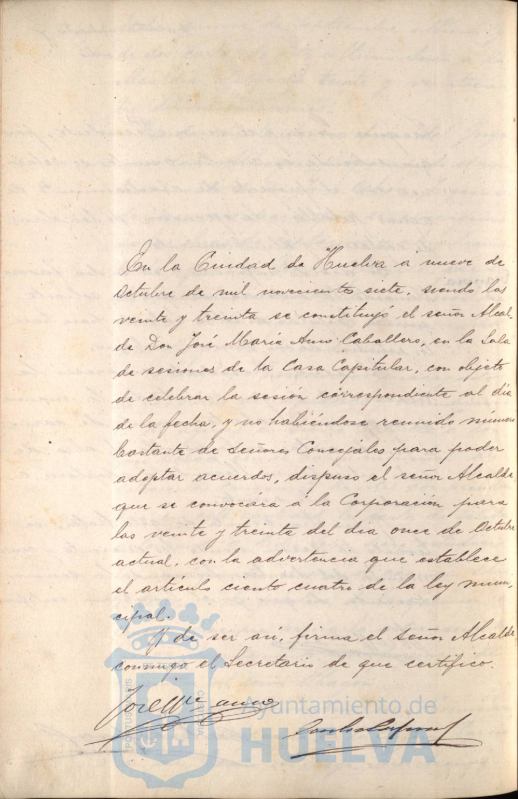 En la Ciudad de Huelva a nueve de
Octubre de mil novecientos siete, siendo las
veinte y treinta se constituyó el señor Alcal-
de Don José María Amo Caballero, en la Sala
de sesiones de la Casa Capitular, con objeto
de celebrar la sesión correspondiente al día
de la fecha, y no habiéndose reunido número
bastante de Señores Concejales para poder
adoptar acuerdos, dispuso el señor Alcalde
que se convocára á la Corporación para
las veinte y treinta del día once de Octubre
actual, con la advertencia que establece
el artículo ciento cuatro de la ley muni-
cipal.
Y de ser así, firma el Señor Alcalde
conmigo el Secretario de que certifico.
José Mª Amo
Ayuntamiento de
HUELVA